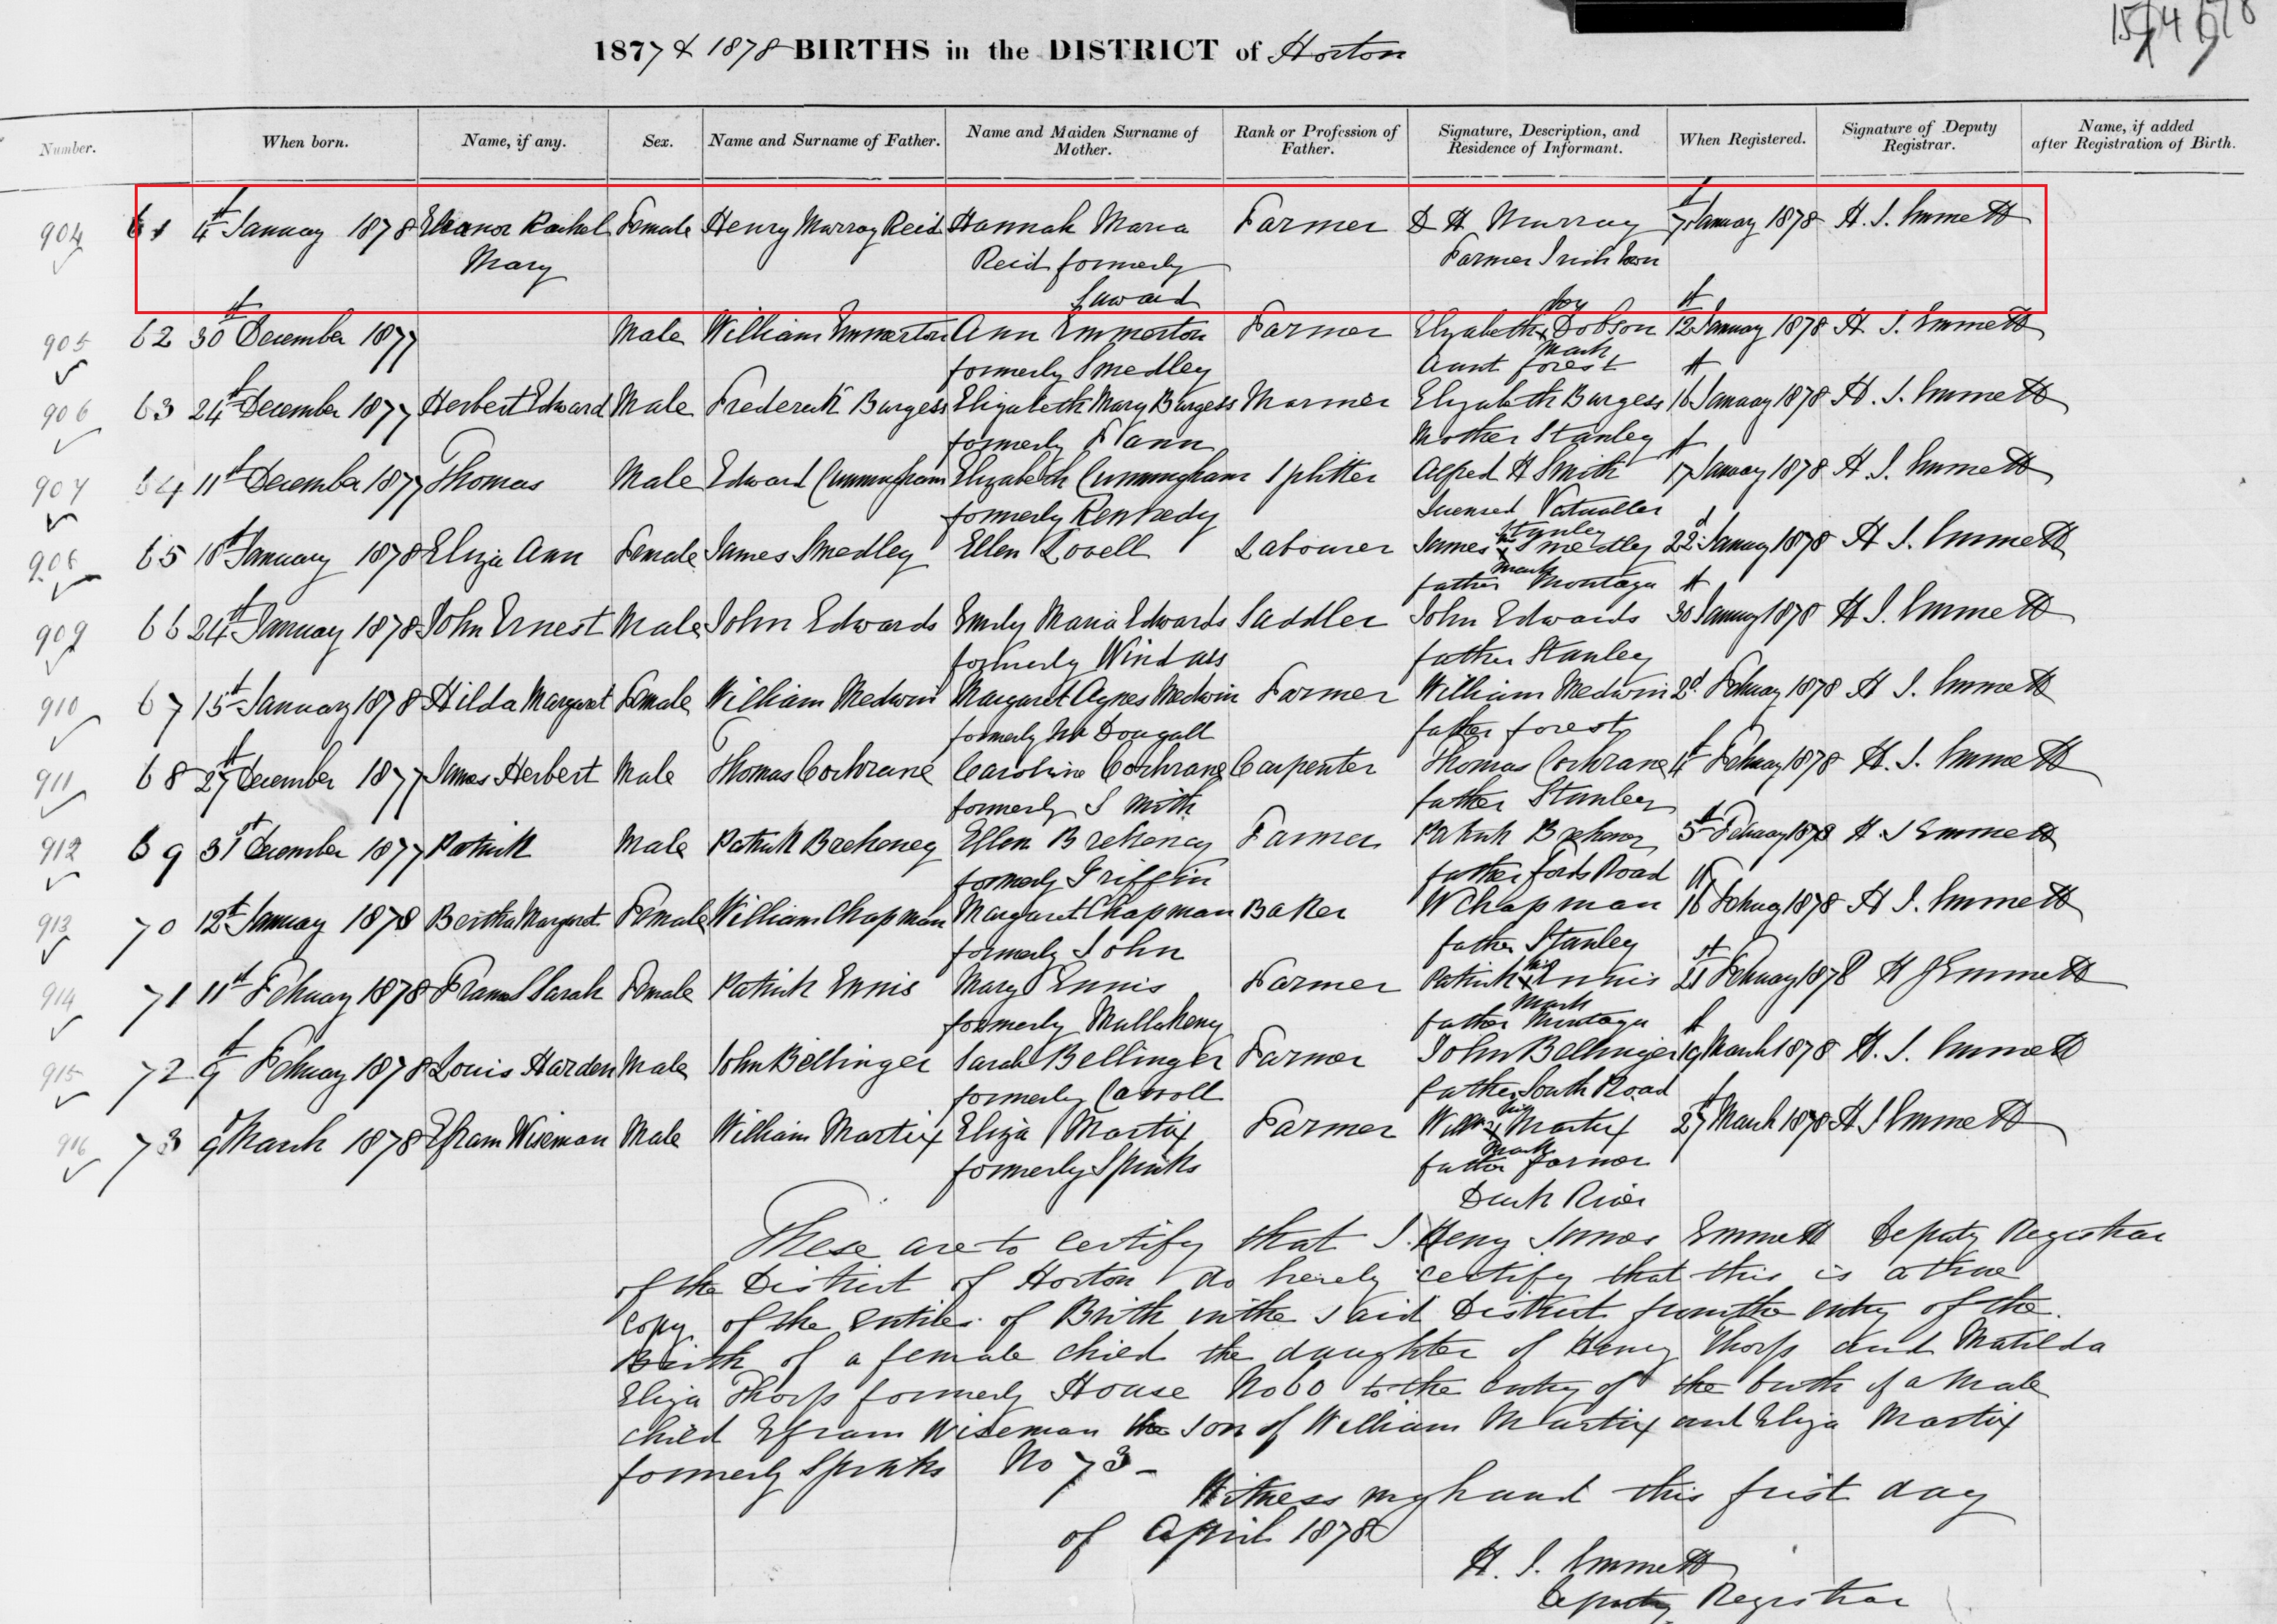 1877 & 1878 BIRTHS in the DISTRICT of Horton
Number. When born. Name, if any. Sex. Name and Surname of Father. Name and Maiden Surname of Mother. Rank or Profession of Father. Signature, Description, and Residence of Informant. When Registered. Signature of Deputy Registrar. Name, if added after Registration of Birth.
904 61 4th January 1878 Eleanor Rachel Female Henry Murray Reid Hannah Maria Farmer D H Murray 7th January 1878 H. J. Emmett
Mary Reid formerly Farmer Irish Town
Saward
905 62 30th December 1877 Male William Emmerton Ann Emmerton Farmer Elizabeth x Dobson 12th January 1878 H J. Emmett
formerly Smedley mark
Aunt forest
906 63 24th December 1877 Herbert Edward Male Frederick Burgess Elizabeth Mary Burgess Marmer Elizabeth Burgess 16th January 1878 H. J. Emmett
formerly Mother Stanley
907 64 11th December 1877 Thomas Male Edward Cunningham Elizabeth Cunningham Splitter Alfred H Smith 17th January 1878 H J. Emmett
formerly Kennedy Licensed Victualler
Stanley
908 65 18th January 1878 Eliza Ann Female James Smedley Ellen Lovell Labourer James x Smedley 22d January 1878 H J. Emmett
mark
father Montagu
909 66 24th January 1878 John Ernest Male John Edwards Emily Maria Edwards Saddler John Edwards 30th January 1878 H J. Emmett
formerly father Stanley
910 67 15th January 1878 Hilda Margaret Female William Medwin Margaret Agnes Medwin Farmer William Medwin 2d February 1878 H J. Emmett
formerly Mc Dougall father forest
911 68 27th December 1877 James Herbert Male Thomas Cochrane Caroline Cochrane Carpenter Thomas Cochrane 4th February 1878 H. J. Emmett
formerly Smith father Stanley
912 69 31st December 1877 Patrick Male Patrick Breheney Ellen Breheney Farmer Patrick Breheney 5th February 1878 H J Emmett
formerly Griffin father fords Road
913 70 12th January 1878 Bertha Margaret Female William Chapman Margaret Chapman Baker W Chapman 16th February 1878 H J. Emmett
formerly John father Stanley
914 71 11th February 1878 Sarah Female Patrick Ennis Mary Ennis Farmer Patrick x Ennis 21st February 1878 H J Emmett
his
mark
formerly Mullaheny father Montagu
915 72 9th February 1878 Louis Harden Male John Bellinger Sarah Bellinger Farmer John Bellinger 19th March 1878 H. J. Emmett
formerly Carroll father South Road
916 73 9th March 1878 Efram Wiseman Male William Martix Eliza Martix Farmer Willm x Martix 27th March 1878 H J Emmett
his
mark
formerly Spinks father farmer
Duck River
These are to certify that I. Henry James Emmett Deputy Registrar
of the District of Horton do hereby certify that this is a true
copy of the entries of Birth in the said District from the entry of the
Birth of a female child the daughter of Henry Thorp and Matilda
Eliza Thorp formerly House No 60 to the entry of the birth of a male
child Efram Wiseman the son of William Martix and Eliza Martix
formerly Spinks No 73 -
Witness my hand this first day
of April 1878
H. J. Emmett
Deputy Registrar